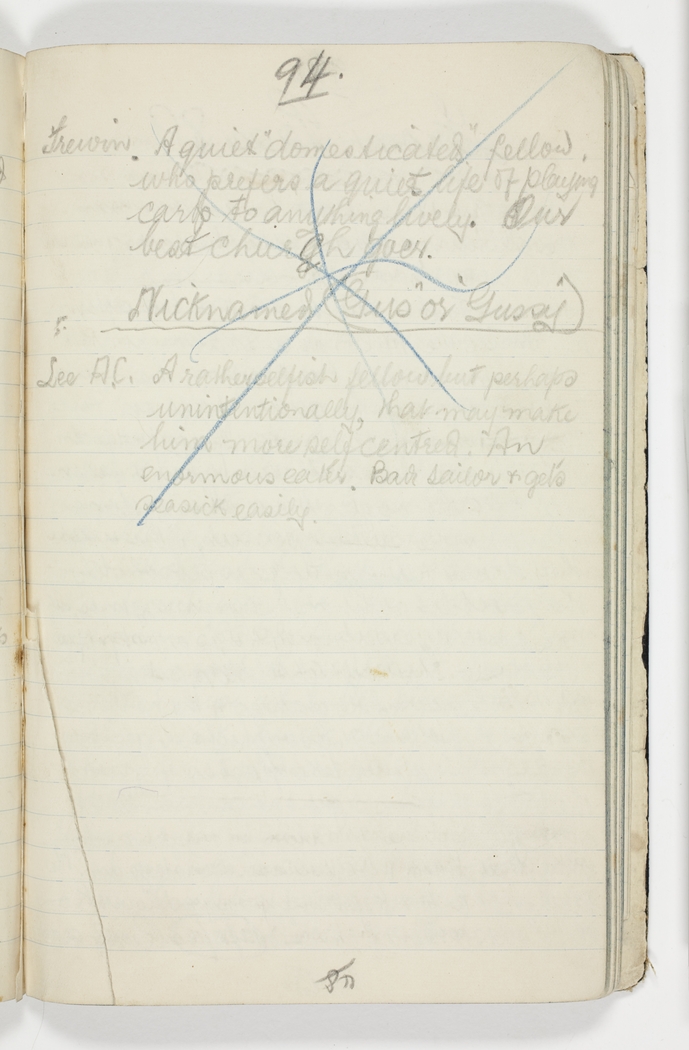 94.
Trewin. A quiet "domesticated" fellow,
who prefers a quiet life of playing
cards to anything lively. Our
best cheergh goer.
Nicknamed ("Gus" or "Gussy")
Lee A.C. A rather selfish fellow but perhaps
unintentionally, that may make
him more self centred. An
enormous eater. Bad sailor & gets
seasick easily.
80